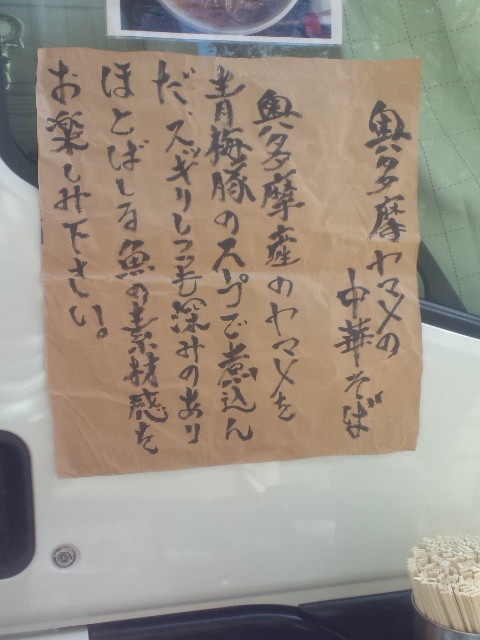 奥多摩ヤマメの
中華そば
奥多摩産のヤマメを
青梅豚のスープで煮込ん
だ、スッキリしつつも深みのあり
ほとばしる魚の素材感を
お楽しみ下さい。